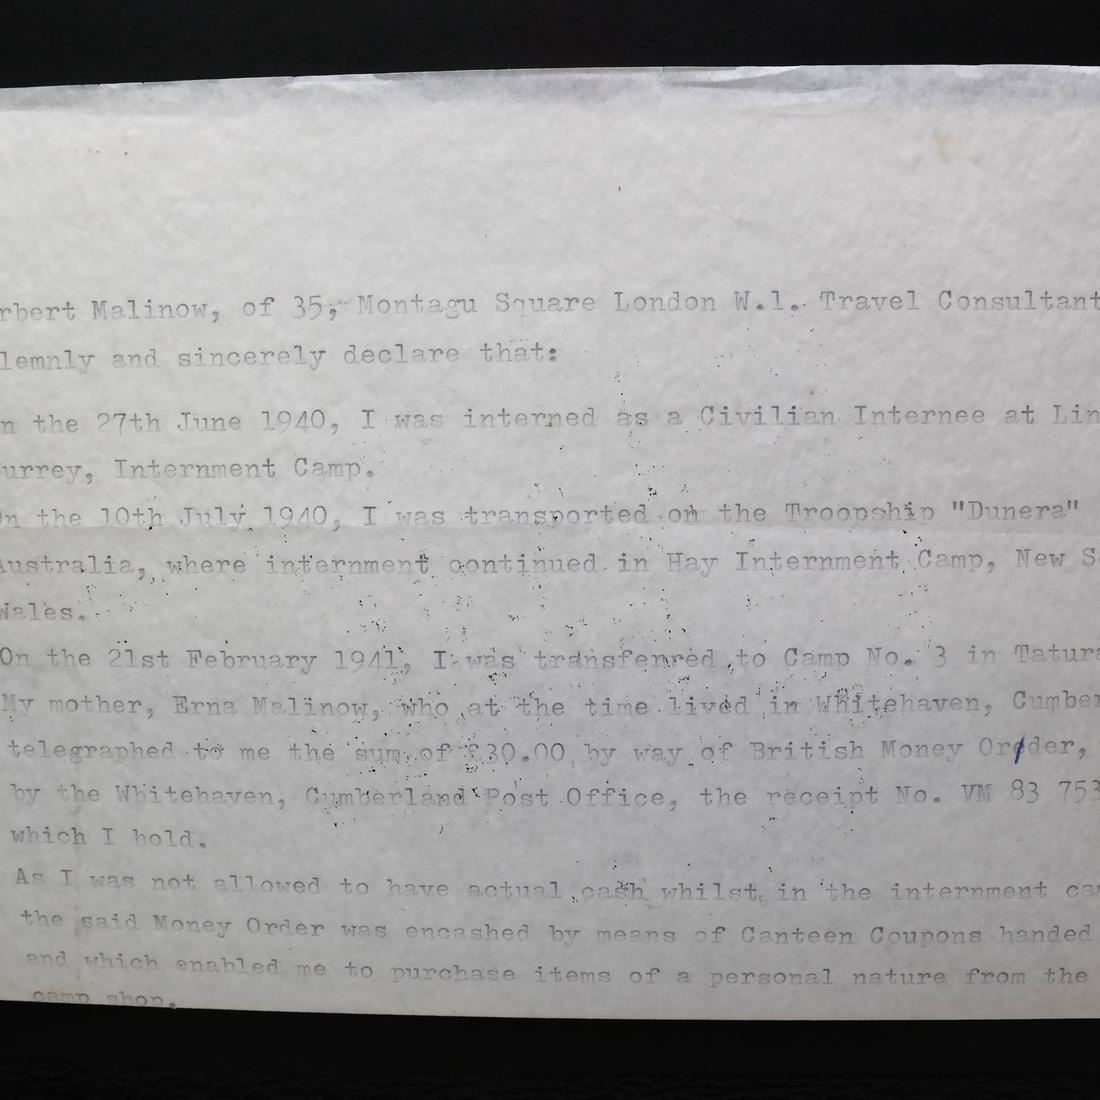 rbert Malinow, of 35, Montagu Square London W.1. Travel Consultant
lemnly and sincerely declare that:
n the 27th June 1940, I was interned as a Civilian Internee at Lin
urrey, Internment Camp.
On the 10th July 1940, I was transported on the Troopship "Dunera"
Australia, where internment continued in Hay Internment Camp, New S
Wales.
On the 21st February 1941, I was transferred to Camp No. 3 in Tatura
My mother, Erna Malinow, who at the time lived in Whitehaven, Cumber
telegraphed to me the sum of £30.00 by way of British Money Order,
by the Whitehaven, Cumberland Post Office, the receipt No. VM 83 753
which I hold.
As I was not allowed to have actual cash whilst in the internment ca
the said Money Order was encashed by means of Canteen Coupons handed
and which enabled me to purchase items of a personal nature from the
camp shop.